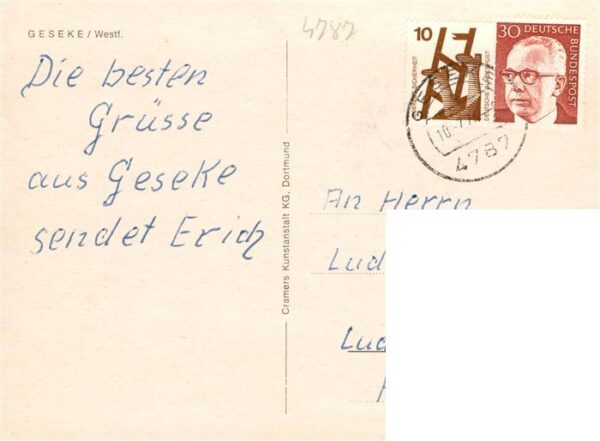 GESEKE / Westf.
4787
Die besten
Grüsse
aus Geseke
sendet Erich
Cramers Kunstanstalt KG, Dortmund
10
DEUTSCHE BUNDESPOST
30
DEUTSCHE
BUNDESPOST
4787
An Herrn